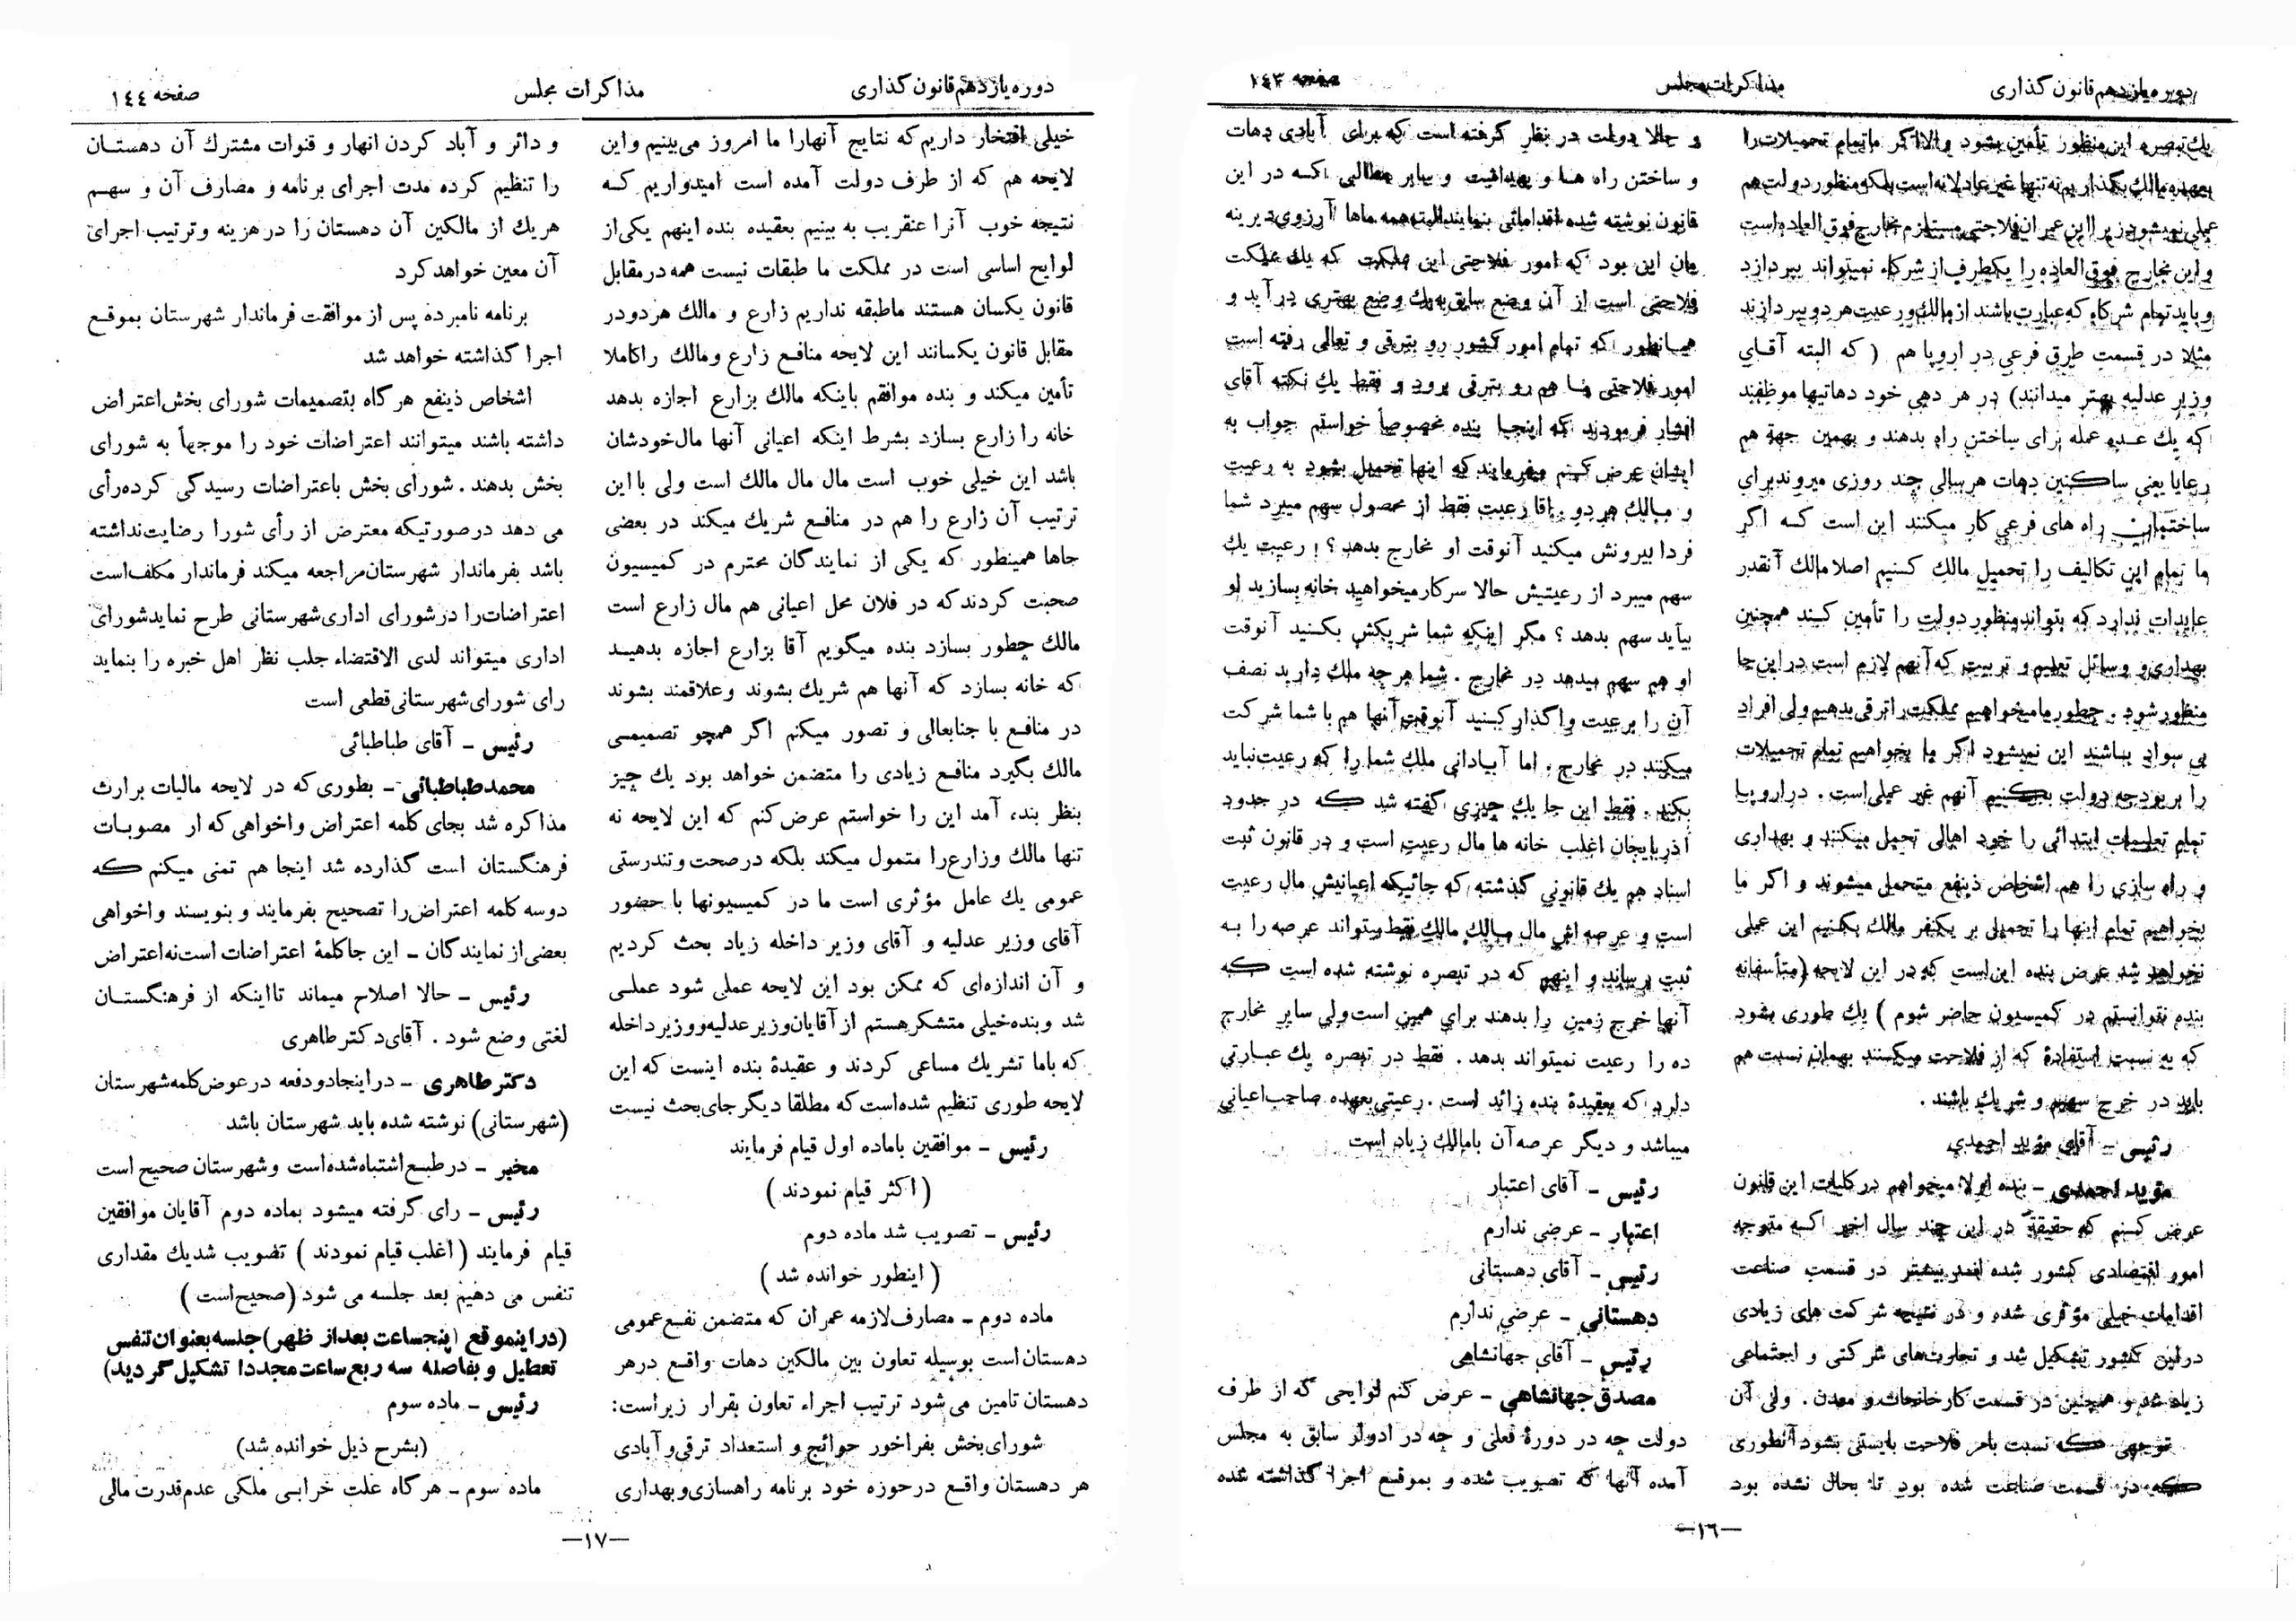 دوره یازدهم قانون گذاری
مذاکرات مجلس
صفحه ۱٤۳
یك تبصره این منظور تأمین بشود و الا اگر ما تمام تحمیلات را
بعهده مالك بگذاریم نه تنها غیر عادلانه است بلکه منظور دولت هم
عملی نمیشود زیرا این عمران فلاحتی مستلزم مخارج فوق العاده است
و این مخارج فوق العاده را یکطرف از شرکاء نمیتواند بپردازد
و باید تمام شرکاء که عبارت باشند از مالك و رعیت هر دو بپردازند
مثلا در قسمت طرق فرعی در اروپا هم ( که البته آقای
وزیر عدلیه بهتر میدانند) در هر دهی خود دهاتیها موظفند
که یك عده عمله برای ساختن راه بدهند و بهمین جهة هم
رعایا یعنی ساکنین دهات هر سالی چند روزی میروند برای
ساختمان راه های فرعی کار میکنند این است کسه اگر
ما تمام این تکالیف را تحمیل مالك کنیم اصلا مالك آنقدر
عایدات ندارد که بتواند منظور دولت را تأمین کند همچنین
بهداری و وسائل تعلیم و تربیت که آنهم لازم است در این جا
منظور شود . چطور ما میخواهیم مملکت را ترقی بدهیم ولی افراد
بی سواد بباشند این نمیشود اگر ما بخواهیم تمام تحمیلات
را بر بودجه دولت بکنیم آنهم غیر عملی است . در اروپا
تمام تعلیمات ابتدائی را خود اهالی تحمل میکنند و بهداری
و راه سازی را هم اشخاص ذینفع متحمل میشوند و اگر ما
بخواهیم تمام اینها را تحمیل بر یکنفر مالك بکنیم این عملی
نخواهد شد عرض بنده این است که در این لایحه (متأسفانه
بنده نتوانستم در کمیسیون حاضر شوم ) یك طوری بشود
که به نسبت استفادهٔ که از فلاحت میکنند بهمان نسبت هم
باید در خرج سهیم و شریك باشند .
رئیس - آقای مؤید احمدی
مؤید احمدی - بنده اولا میخواهم در کلیات این قانون
عرض کنم که حقیقةً در این چند سال اخیر کسه متوجه
امور اقتصادی کشور شده اند بیشتر در قسمت صناعت
اقدامات خیلی مؤثری شده و در نتیجه شرکت های زیادی
در این کشور تشکیل شد و تجارت‌های شرکتی و اجتماعی
زیاد شد و همچنین در قسمت کارخانجات و معدن . ولی آن
توجهی که نسبت بامر فلاحت بایستی بشود آنطوری
که در قسمت صناعت شده بود تا بحال نشده بود
و حالا دولت در نظر گرفته است که برای آبادی دهات
و ساختن راه ها و بهداشت و سایر مطالبی کسه در این
قانون نوشته شده اقداماتی بنمایند البته همه ماها آرزوی دیرینه
مان این بود که امور فلاحتی این مملکت که یك مملکت
فلاحتی است از آن وضع سابق به یك وضع بهتری درآید و
همانطور که تمام امور کشور رو بترقی و تعالی رفته است
امور فلاحتی ما هم رو بترقی برود و فقط یك نکته آقای
افشار فرمودند که اینجا بنده مخصوصاً خواستم جواب به
ایشان عرض کنم میفرمایند که اینها تحمیل بشود به رعیت
و مالك هر دو . آقا رعیت فقط از محصول سهم میبرد شما
فردا بیرونش میکنید آنوقت او مخارج بدهد ؟ ! رعیت یك
سهم میبرد از رعیتیش حالا سرکار میخواهید خانه بسازید او
بیآید سهم بدهد ؟ مگر اینکه شما شریکش بکنید آنوقت
او هم سهم میدهد در مخارج . شما هر چه ملك دارید نصف
آن را برعیت واگذار کنید آنوقت آنها هم با شما شرکت
میکنند در مخارج . اما آبیادانی ملك شما را که رعیت نباید
بکند . فقط این جا یك چیزی گفته شد که در حدود
آذربایجان اغلب خانه ها مال رعیت است و در قانون ثبت
اسناد هم یك قانونی گذشته که جائیکه اعیانیش مال رعیت
است و عرصه اش مال مالك مالك فقط میتواند عرصه را به
ثبت برساند و اینهم که در تبصره نوشته شده است که
آنها خرج زمین را بدهند برای همین است ولی سایر مخارج
ده را رعیت نمیتواند بدهد . فقط در تبصره یك عبارتی
دارد که بعقیدهٔ بنده زائد است . رعیتی بعهده صاحب اعیانی
میباشد و دیگر عرصه آن با مالك زیاد است
رئیس - آقای اعتبار
اعتبار - عرضی ندارم
رئیس - آقای دهستانی
دهستانی - عرضی ندارم
رئیس - آقای جهانشاهی
مصدق جهانشاهی - عرض کنم لوایحی که از طرف
دولت چه در دورهٔ فعلی و چه در ادوار سابق به مجلس
آمده آنها که تصویب شده و بموقع اجرا گذاشته شده
—١٦—
دوره یازدهم قانون گذاری
مذاکرات مجلس
صفحه ۱٤٤
خیلی افتخار داریم که نتایج آنهارا ما امروز می‌بینیم و این
لایحه هم که از طرف دولت آمده است امیدواریم کسه
نتیجه خوب آنرا عنقریب به بینیم بعقیده بنده اینهم یکی از
لوایح اساسی است در مملکت ما طبقات نیست همه در مقابل
قانون یکسان هستند ما طبقه نداریم زارع و مالك هر دو در
مقابل قانون یکسانند این لایحه منافع زارع و مالك را کاملا
تأمین میکند و بنده موافقم باینکه مالك بزارع اجازه بدهد
خانه را زارع بسازد بشرط اینکه اعیانی آنها مال خودشان
باشد این خیلی خوب است مال مال مالك است ولی با این
ترتیب آن زارع را هم در منافع شریك میکند در بعضی
جاها همینطور که یکی از نمایندگان محترم در کمیسیون
صحبت کردند که در فلان محل اعیانی هم مال زارع است
مالك چطور بسازد بنده میگویم آقا بزارع اجازه بدهید
که خانه بسازد که آنها هم شریك بشوند و علاقمند بشوند
در منافع با جنابعالی و تصور میکنم اگر همچو تصمیمی
مالك بگیرد منافع زیادی را متضمن خواهد بود یك چیز
بنظر بنده آمد این را خواستم عرض کنم که این لایحه نه
تنها مالك و زارع را متمول میکند بلکه در صحت و تندرستی
عمومی یك عامل مؤثری است ما در کمیسیونها با حضور
آقای وزیر عدلیه و آقای وزیر داخله زیاد بحث کردیم
و آن اندازه‌ای که ممکن بود این لایحه عملی شود عملی
شد و بنده خیلی متشکر هستم از آقایان وزیر عدلیه و وزیر داخله
که باما تشریك مساعی کردند و عقیدهٔ بنده اینست که این
لایحه طوری تنظیم شده است که مطلقا دیگر جای بحث نیست
رئیس - موافقین باماده اول قیام فرمایند
( اکثر قیام نمودند )
رئیس - تصویب شد ماده دوم
( اینطور خوانده شد )
ماده دوم - مصارف لازمه عمران که متضمن نفع عمومی
دهستان است بوسیله تعاون بین مالکین دهات واقع در هر
دهستان تامین می شود ترتیب اجراء تعاون بقرار زیر است:
شورای بخش بفراخور حوائج و استعداد ترقی و آبادی
هر دهستان واقع در حوزه خود برنامه راهسازی و بهداری
و دائر و آباد کردن انهار و قنوات مشترك آن دهستان
را تنظیم کرده مدت اجرای برنامه و مصارف آن و سهم
هریك از مالکین آن دهستان را در هزینه و ترتیب اجرای
آن معین خواهد کرد
برنامه نامبرده پس از موافقت فرماندار شهرستان بموقع
اجرا گذاشته خواهد شد
اشخاص ذینفع هر گاه بتصمیمات شورای بخش اعتراض
داشته باشند میتوانند اعتراضات خود را موجهاً به شورای
بخش بدهند . شورای بخش باعتراضات رسیدگی کرده رأی
می دهد در صورتیکه معترض از رأی شورا رضایت نداشته
باشد بفرماندار شهرستان مراجعه میکند فرماندار مکلف است
اعتراضات را در شورای اداری شهرستانی طرح نماید شورای
اداری میتواند لدی الاقتضاء جلب نظر اهل خبره را بنماید
رای شورای شهرستانی قطعی است
رئیس - آقای طباطبائی
محمد طباطبائی - بطوری که در لایحه مالیات بر ارث
مذاکره شد بجای کلمه اعتراض واخواهی که از مصوبات
فرهنگستان است گذارده شد اینجا هم تمنی میکنم که
دوسه کلمه اعتراض را تصحیح بفرمایند و بنویسند واخواهی
بعضی از نمایندگان - این جا کلمهٔ اعتراضات است نه اعتراض
رئیس - حالا اصلاح میماند تا اینکه از فرهنگستان
لغتی وضع شود . آقای دکتر طاهری
دکتر طاهری - در اینجا دو دفعه در عوض کلمه شهرستان
(شهرستانی) نوشته شده باید شهرستان باشد
مخبر - در طبع اشتباه شده است و شهرستان صحیح است
رئیس - رای گرفته میشود بماده دوم آقایان موافقین
قیام فرمایند ( اغلب قیام نمودند ) تصویب شد یك مقداری
تنفس می دهیم بعد جلسه می شود (صحیح است )
(در اینموقع (پنجساعت بعد از ظهر) جلسه بعنوان تنفس
تعطیل و بفاصله سه ربع ساعت مجددا تشکیل گردید)
رئیس - ماده سوم
(بشرح ذیل خوانده شد)
ماده سوم - هر گاه علت خرابی ملکی عدم قدرت مالی
—١٧—